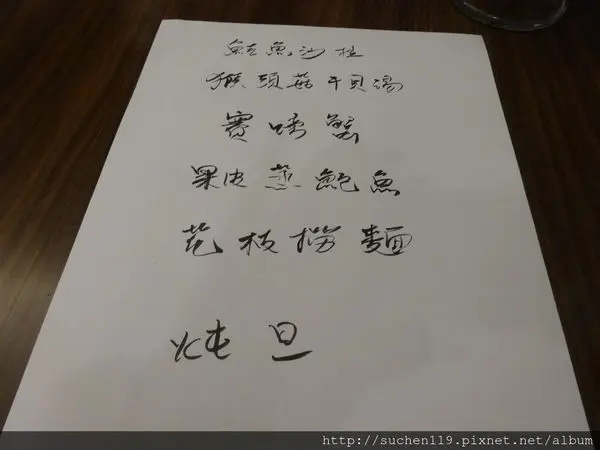 鮭魚沙拉
猴頭菇干貝湯
賽螃蟹
果皮蒸鮑魚
花枝撈麵
炖旦
http://suchen119.pixnet.net/album